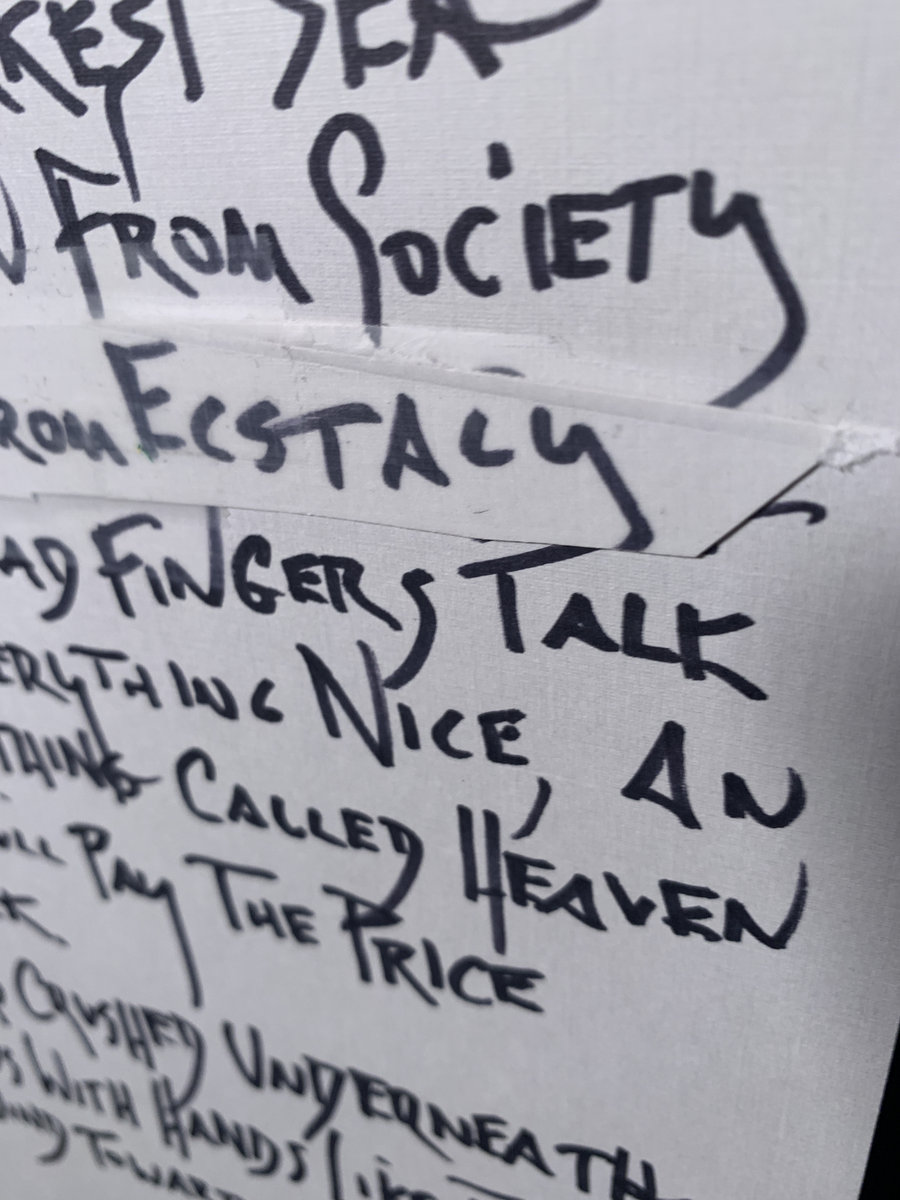 SEA
FROM SOCIETY
ROM ECSTACY
AD FINGERS TALK
ERYTHING NICE, AN
THING CALLED HEAVEN
LL PAY THE PRICE
CRUSHED UNDERNEATH
WITH HANDS LIKE
TOWAR